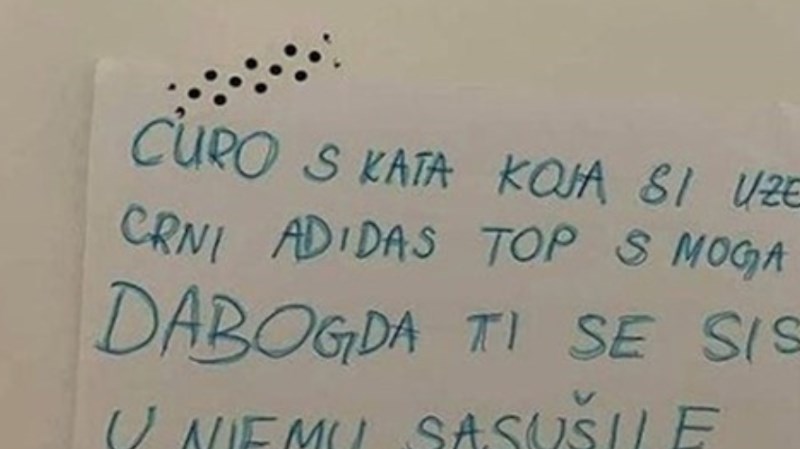 CURO S KATA KOJA SI UZE
CRNI ADIDAS TOP S MOGA
DABOGDA TI SE SIS
U NJEMU SASUŠILE